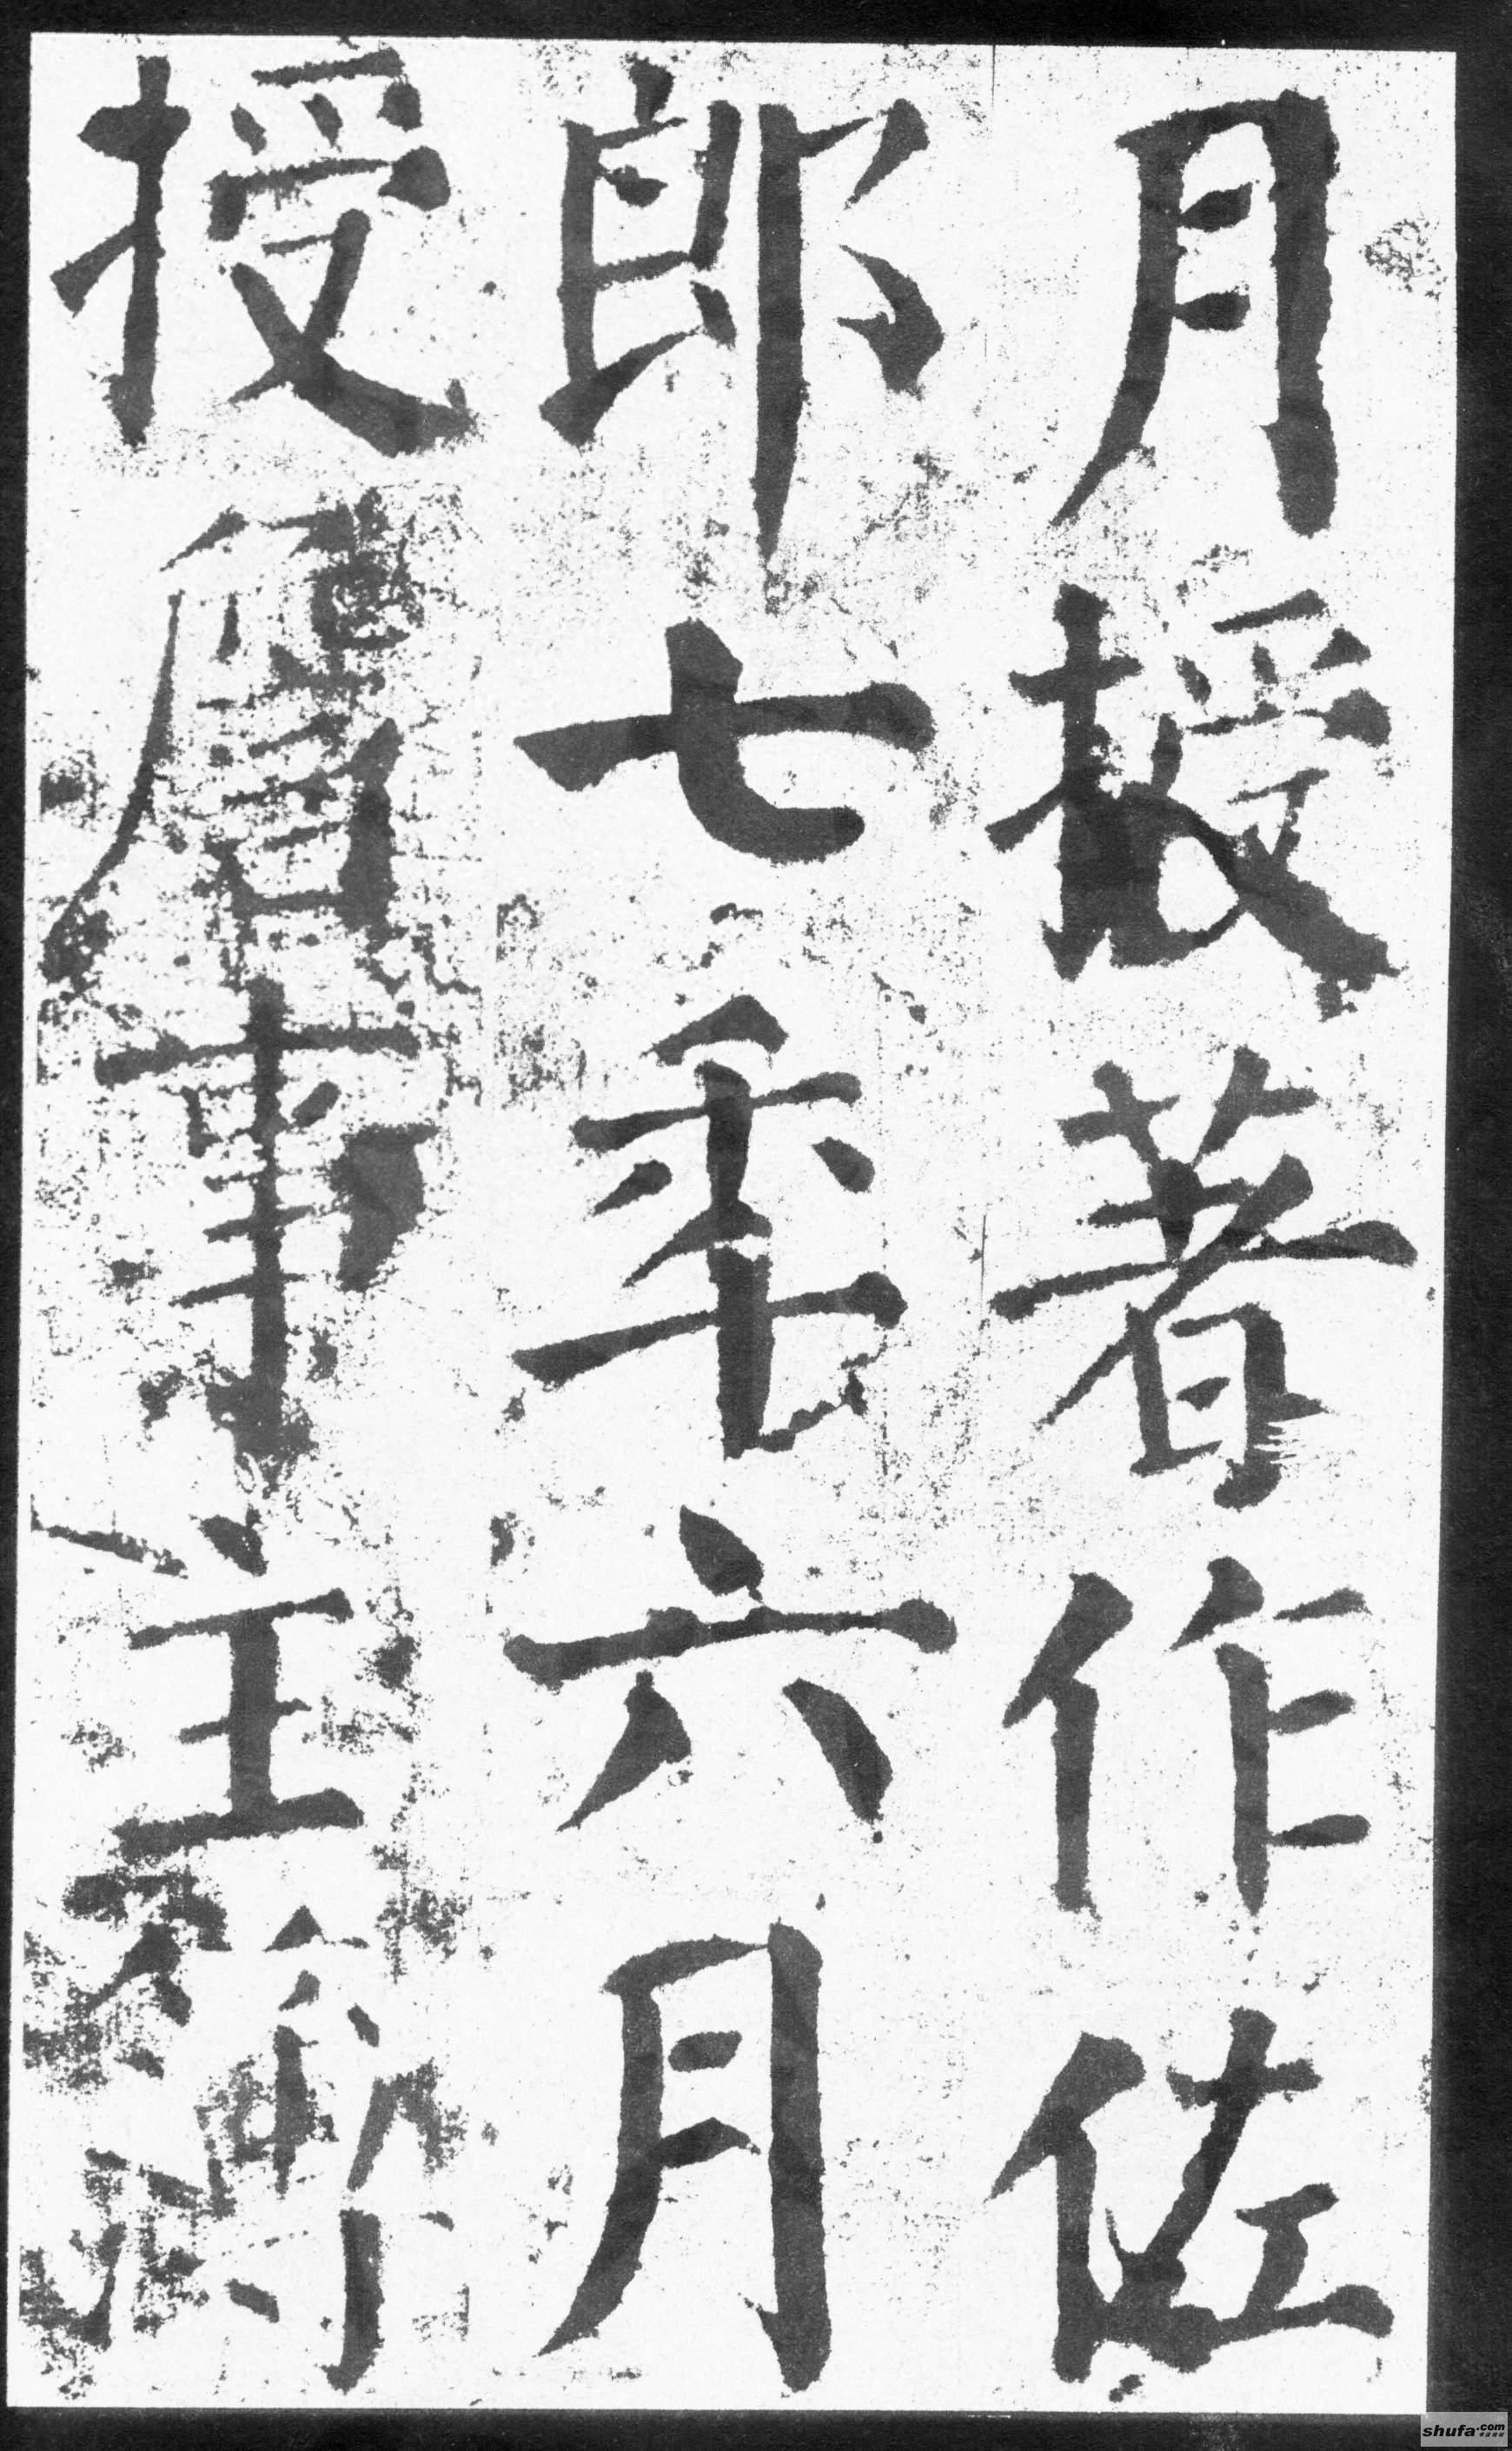 月授著作佐
郎七年六月
授詹事主簿
shufa.com